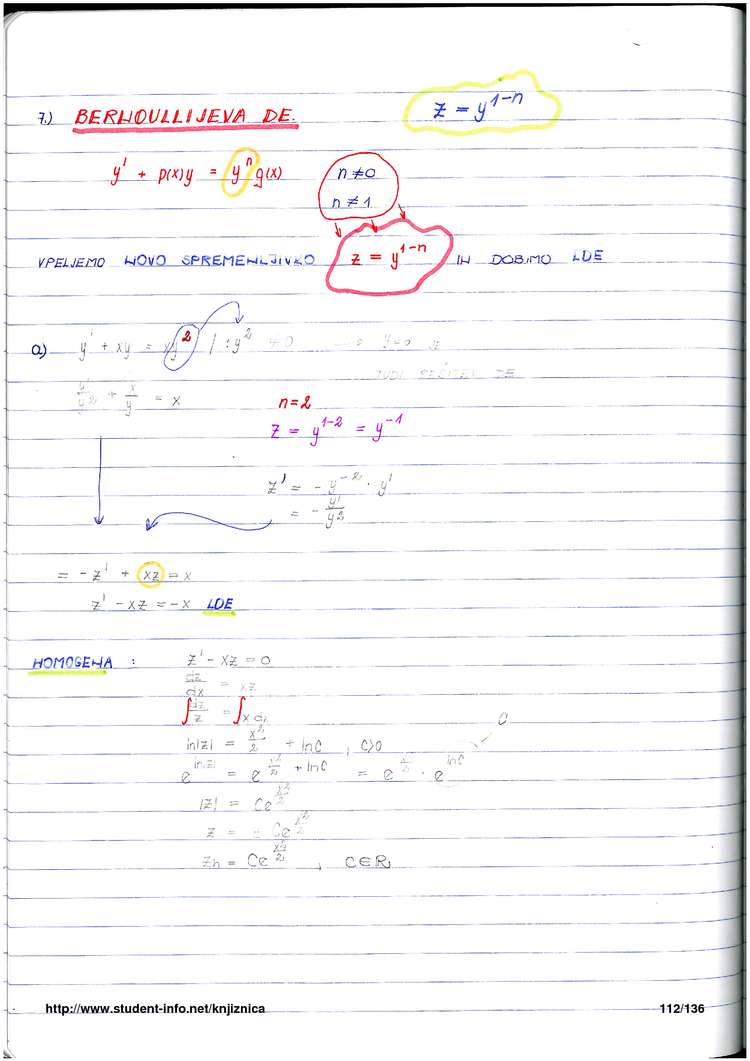 7.) BERNOULLIJEVA DE. z = y^{1-n}
y' + p(x)y = y^n g(x) n ≠ 0
n ≠ 1
VPELJEMO NOVO SPREMENLJIVKO z = y^{1-n} IN DOBIMO LDE
a) y' + xy = xy^2 / : y^2 ≠ 0 → y = 0
TUDI REŠITEV DE
y'/y^2 + x/y = x n = 2
z = y^{1-2} = y^{-1}
z' = - y^{-2} · y'
= - y'/y^2
= - z' + xz = x
z' - xz = -x LDE
HOMOGENA : z' - xz = 0
dz/dx = xz
∫ dz/z = ∫ x dx
ln|z| = x^2/2 + lnC , C>0
e^{ln|z|} = e^{x^2/2 + lnC} = e^{x^2/2} · e^{lnC} C
|z| = Ce^{x^2/2}
z = ± Ce^{x^2/2}
zh = Ce^{x^2/2} , C∈R
http://www.student-info.net/knjiznica 112/136